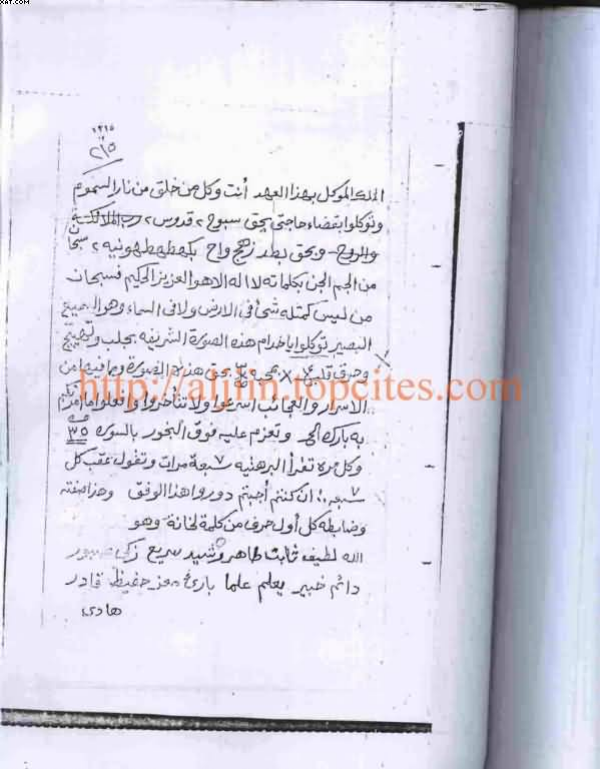 XAT.COM
١٢١٥
٢١٥
الملك الموكل بهذا العهد أنت وكل من خلق من نار السموم
وتوكلوا بقضاء حاجتى بحق سبوح ٢ قدوس ٢ رب الملائكة
والروح وبحق بطد زهج واح بكهطهطهونيه ٢ سبحان
من الجم الجن بكلماته لا اله الا هو العزيز الحكيم فسبحان
من ليس كمثله شئ فى الارض ولا فى السماء وهو السميع
البصير توكلوا يا خدام هذه الصورة الشريفه بجلب وتهييج
وحرق قلب بحق هذه الصورة وما فيها من
http://aljinn.topcites.com
الاسرار والعجائب اسرعوا ولا تتأخروا وافعلوا ما أمرتكم
به بارك الله وتعزم عليه فوق البخور بالسوره ٣٥ مره
وكل مره تقرأ البرهتيه ٧ سبعة مرات وتقول عقب كل
٧ سبعه ان كنتم أجبتم دوروا هذا الوفق وهذا صفته
وضابطه كل أول حرف من كلمة لخانة وهو
الله لطيف ثابت طاهر رشيد سريع زكى
دائم خبير يعلم علما بارئ معز حفيظ قادر
هادى